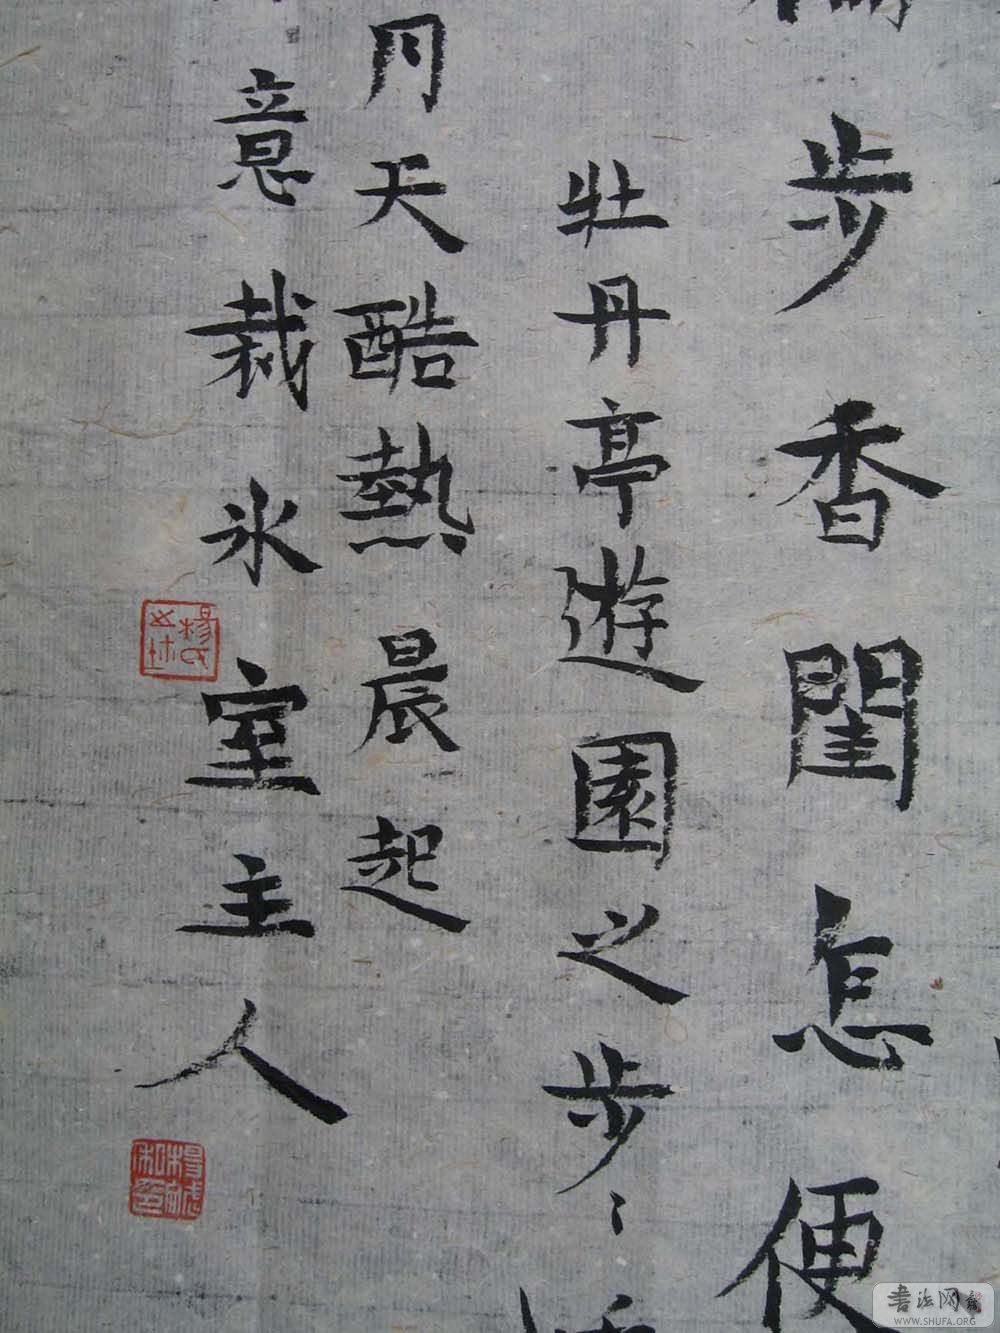 步香閨怎便
牡丹亭遊園之步〻
月天酷熱晨起
意栽冰室主人
楊氏
書法网
WWW.SHUFA.ORG